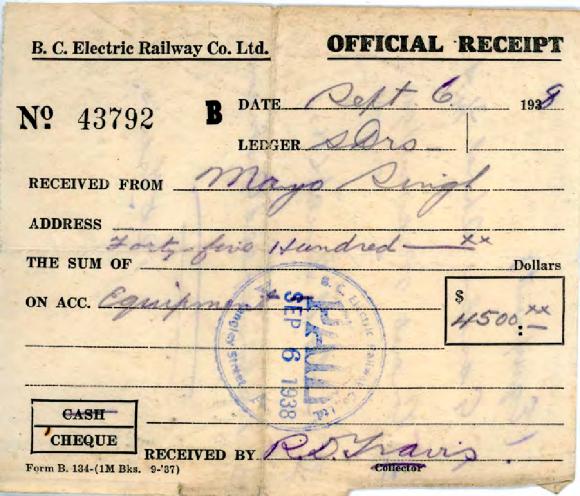 B. C. Electric Railway Co. Ltd. OFFICIAL RECEIPT
Nº 43792 B DATE Sept 6 1938
LEDGER sDrs
RECEIVED FROM Mayo Singh
ADDRESS
Forty-five Hundred xx
THE SUM OF Dollars
ON ACC. Equipment $ 4500:xx
B.C. Electric Railway Co. Ltd.
PAID
SEP 6 1938
CASH
CHEQUE
RECEIVED BY R.D. Travis
Collector
Form B. 134-(1M Bks. 9-'37)